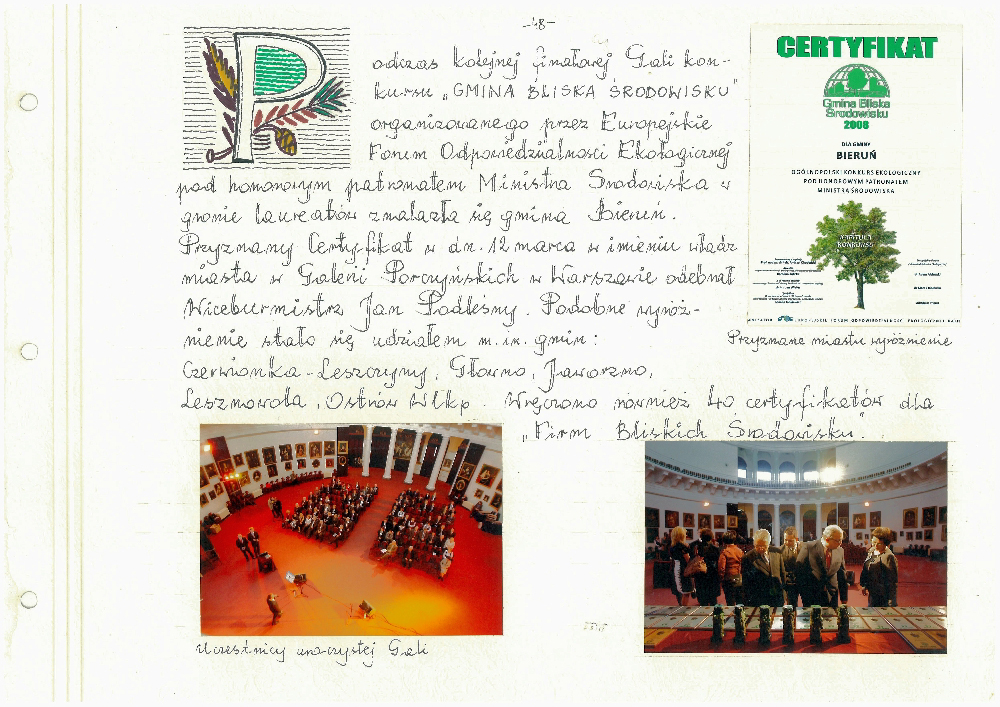 -48-
Podczas kolejnej finałowej Gali kon-
kursu „GMINA BLISKA ŚRODOWISKU"
organizowanego przez Europejskie
Forum Odpowiedzialności Ekologicznej
pod honorowym patronatem Ministra Środowiska w
gronie laureatów znalazła się gmina Bieruń.
Przyznany Certyfikat w dn. 12 marca w imieniu władz
miasta w Galerii Porczyńskich w Warszawie odebrał
Wiceburmistrz Jan Podleśny. Podobne wyróż-
nienie stało się udziałem m.in. gmin:
Czerwionka-Leszczyny, Głowno, Jaworzno,
Lesznowola, Ostrów Wlkp. Wręczono również 40 certyfikatów dla
„Firm Bliskich Środowisku".
CERTYFIKAT
Gmina Bliska
Środowisku
2008
DLA GMINY
BIERUŃ
OGÓLNOPOLSKI KONKURS EKOLOGICZNY
POD HONOROWYM PATRONATEM
MINISTRA ŚRODOWISKA
KAPITUŁA
KONKURSU
EUROPEJSKIE FORUM ODPOWIEDZIALNOŚCI EKOLOGICZNEJ
Przyznane miastu wyróżnienie
Uczestnicy uroczystej Gali